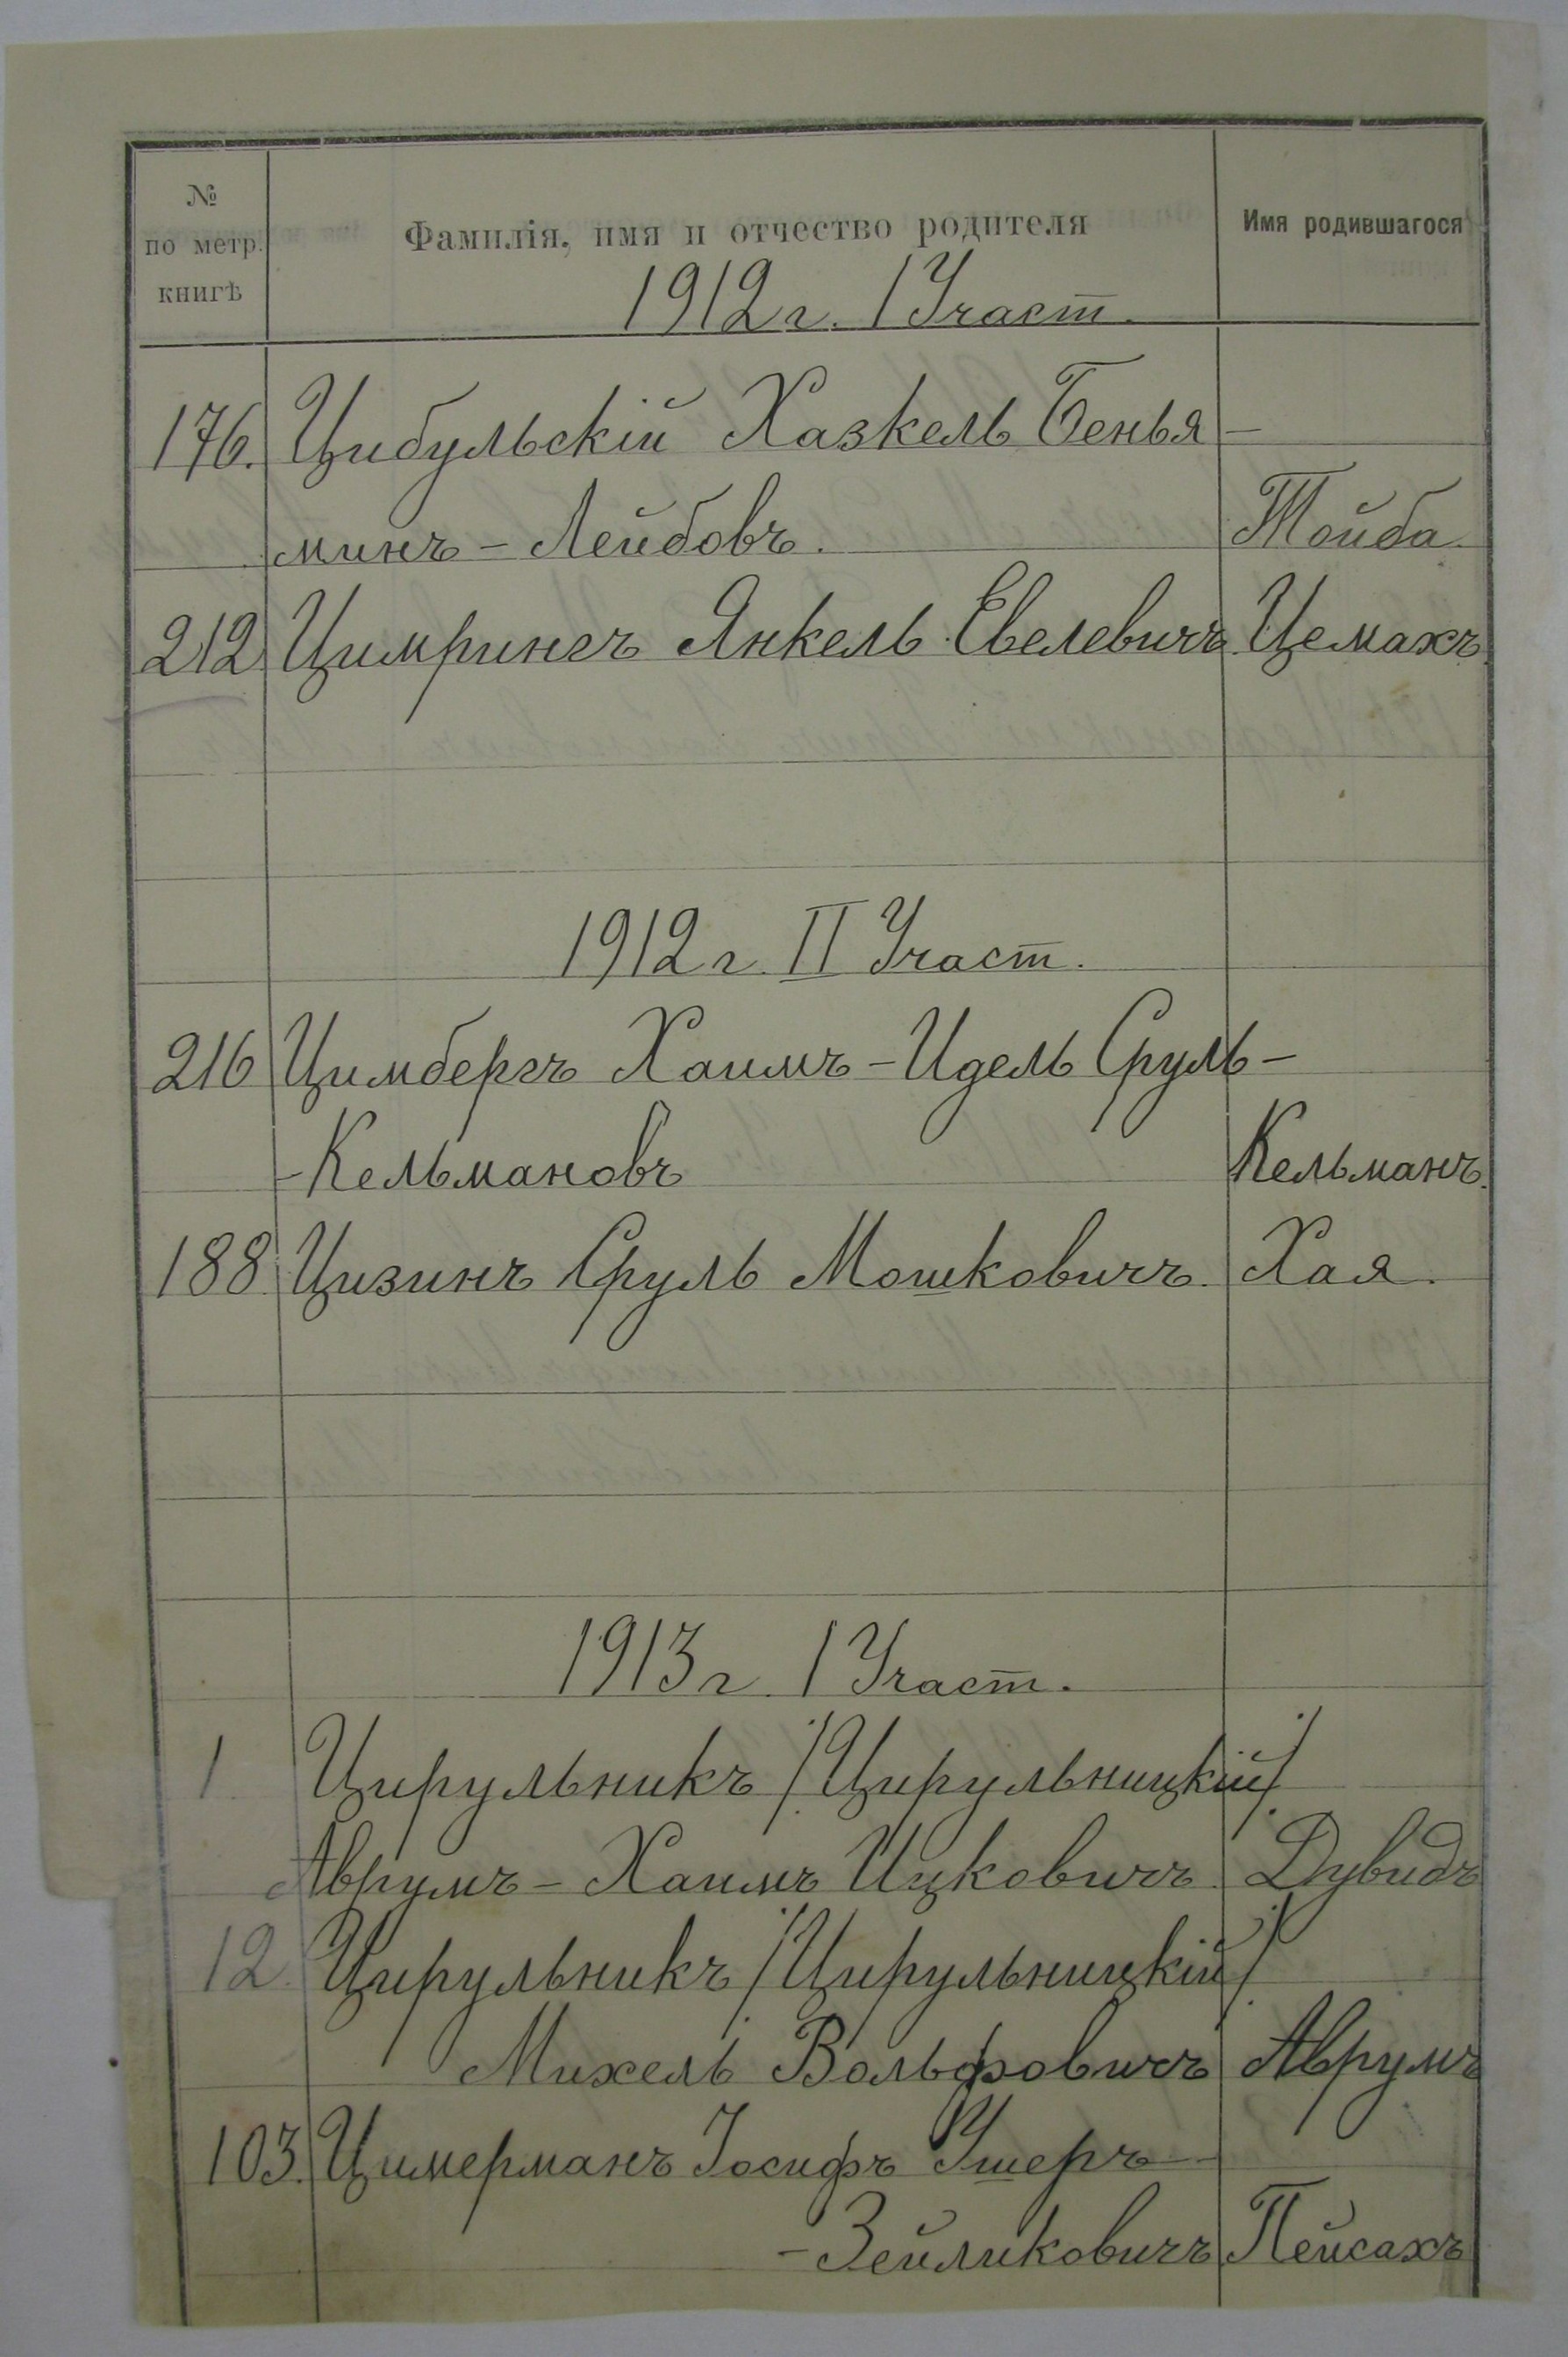 № по метр. книгѣ
Фамилія, имя и отчество родителя
Имя родившагося
1912 г. I Участ.
176. Цибульскій Хазкель Бенья-
минъ-Лейбовъ. Тойба.
212 Цимрингъ Янкель Евелевичъ. Цемахъ.
1912 г. II Участ.
216 Цимбергъ Хаимъ-Идель Сруль-
-Кельмановъ Кельманъ.
188 Цизинъ Сруль Мошковичъ. Хая.
1913 г. I Участ.
1. Цирульникъ /Цирульницкій/
Аврумъ-Хаимъ Ицковичъ. Дувидъ
12. Цирульникъ /Цирульницкій/
Михель Вольфовичъ Аврумъ
103. Цимерманъ Іосифъ Ушеръ-
-Зейликовичъ Пейсахъ